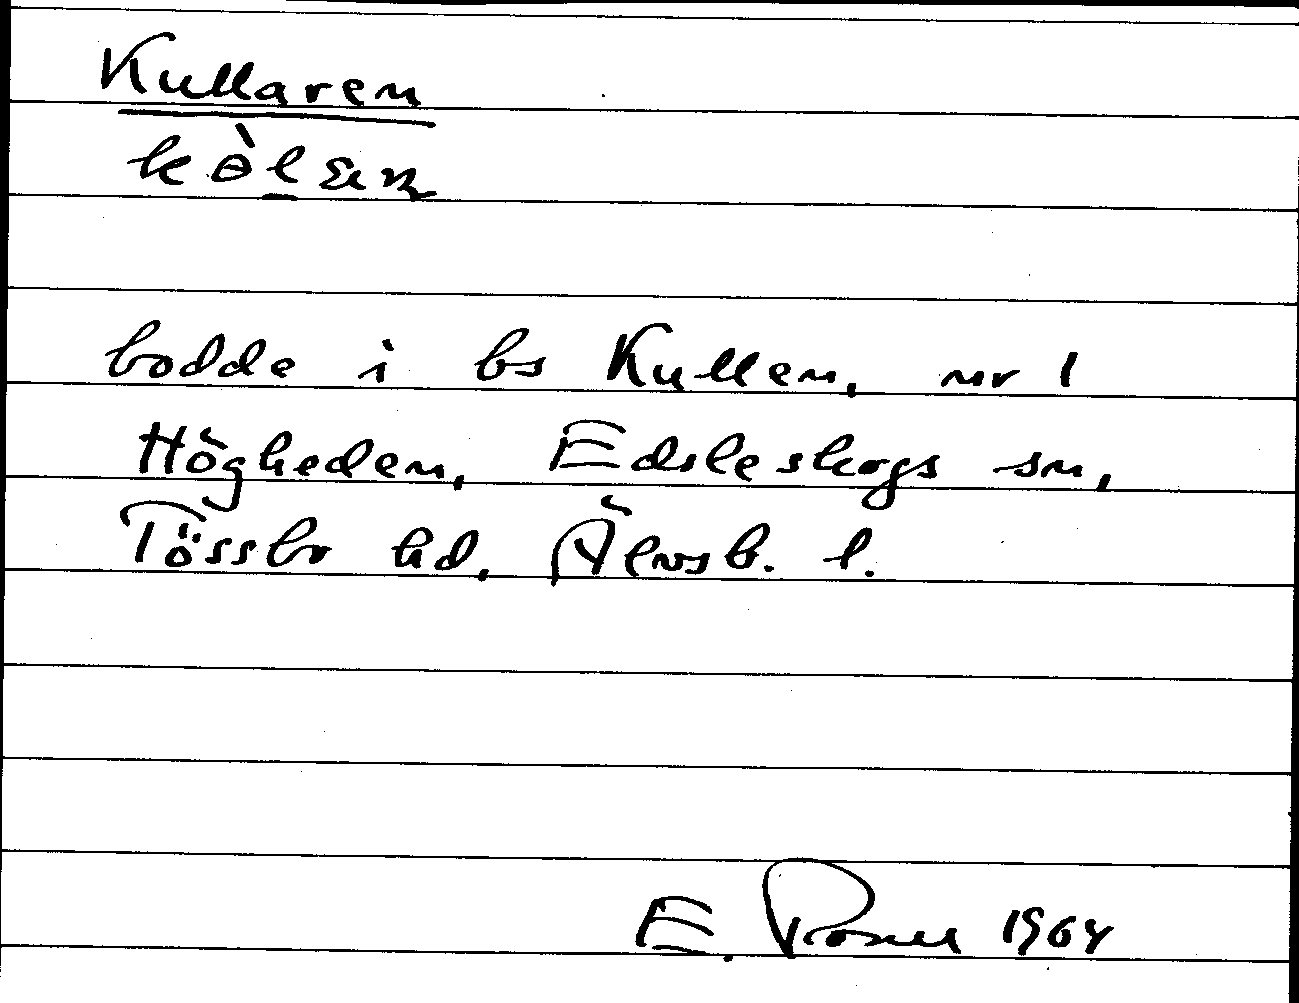 Kullaren
bodde i bs Kullen, nr 1
Högheden, Edsleskogs sn,
Tössbo hd, Älvsb. l.
E. 1964